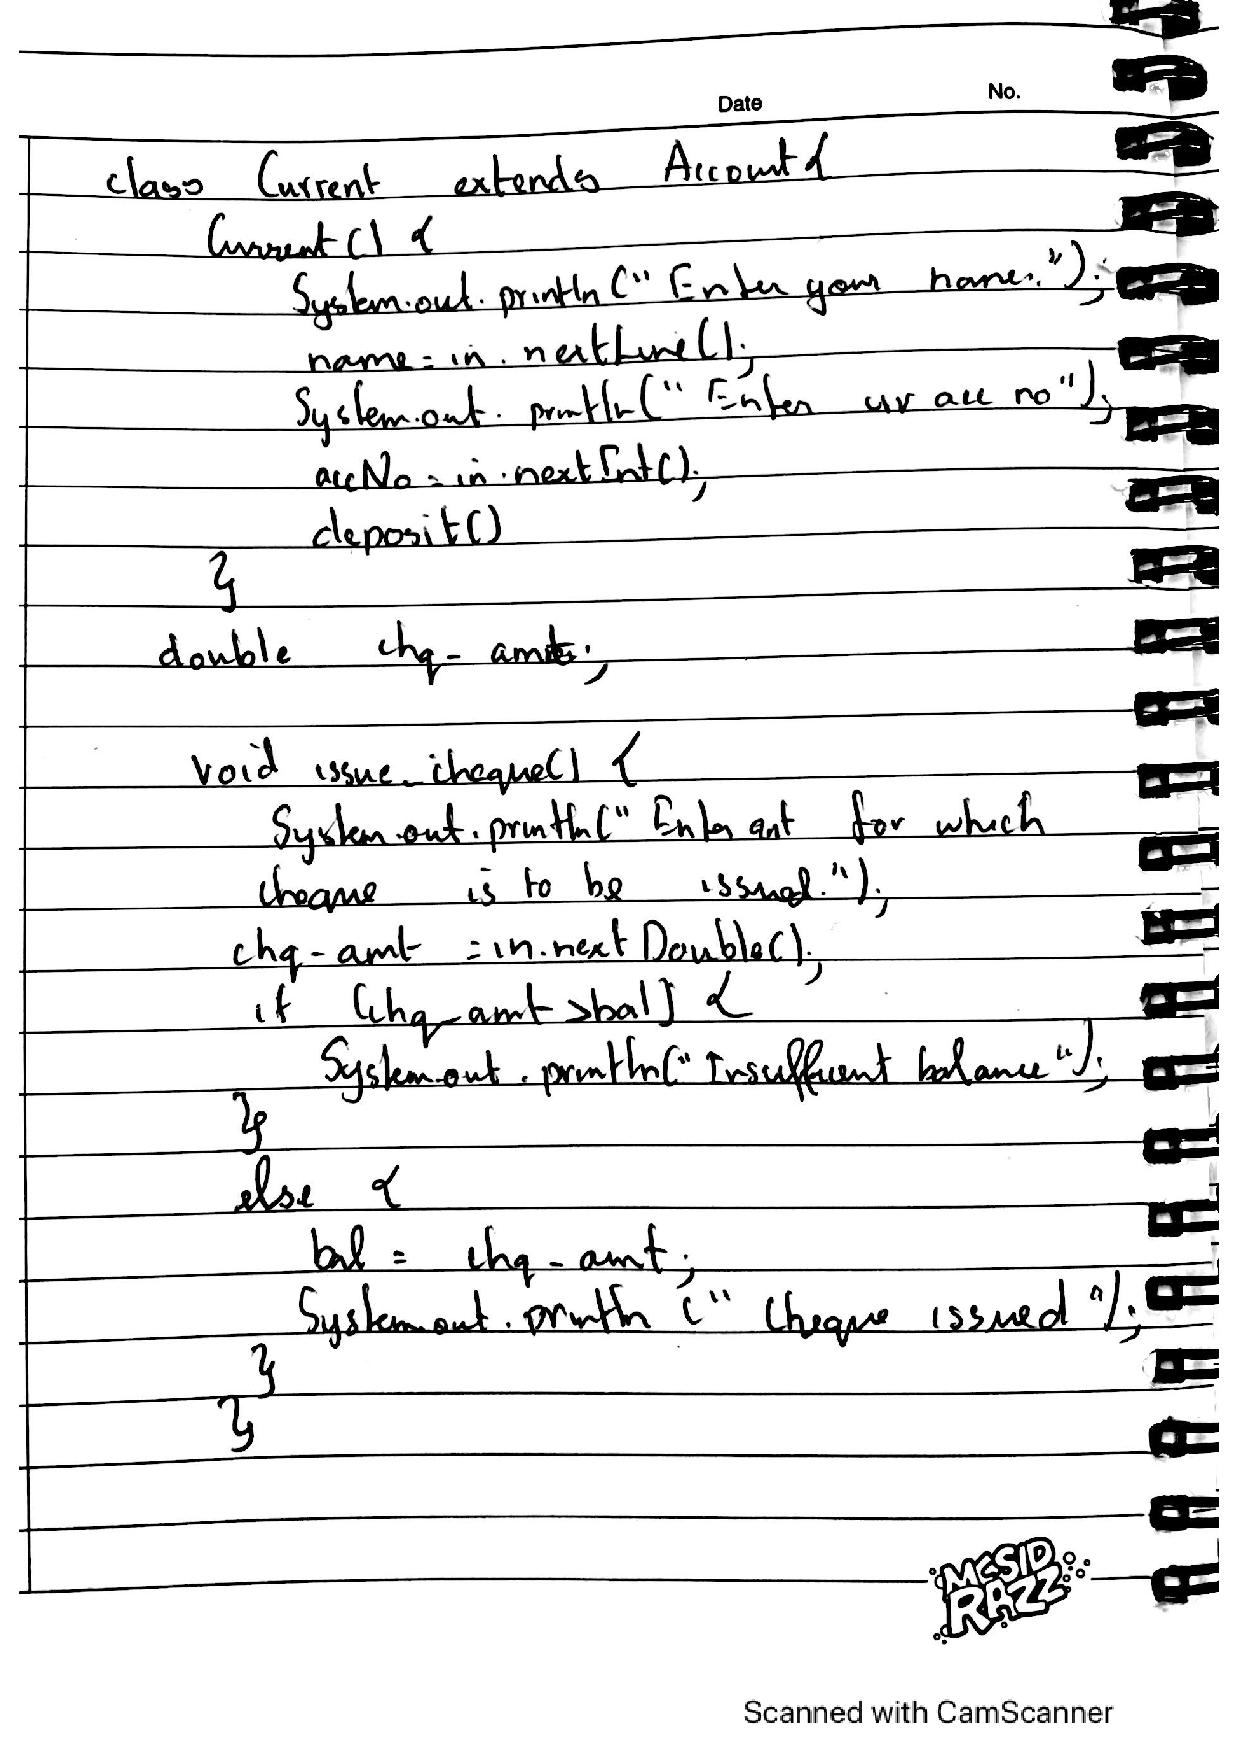 Date No.
class Current extends Account {
Current() {
System.out.println("Enter your name.");
name = in.nextLine();
System.out.println("Enter ur acc no");
accNo = in.nextInt();
deposit()
}
double chq_amt;
void issue_cheque() {
System.out.println("Enter amt for which
cheque is to be issued.");
chq_amt = in.nextDouble();
if (chq_amt > bal) {
System.out.println("Insufficient balance");
}
else {
bal = chq_amt;
System.out.println("Cheque issued");
}
}
MCSID
RAZZ
Scanned with CamScanner